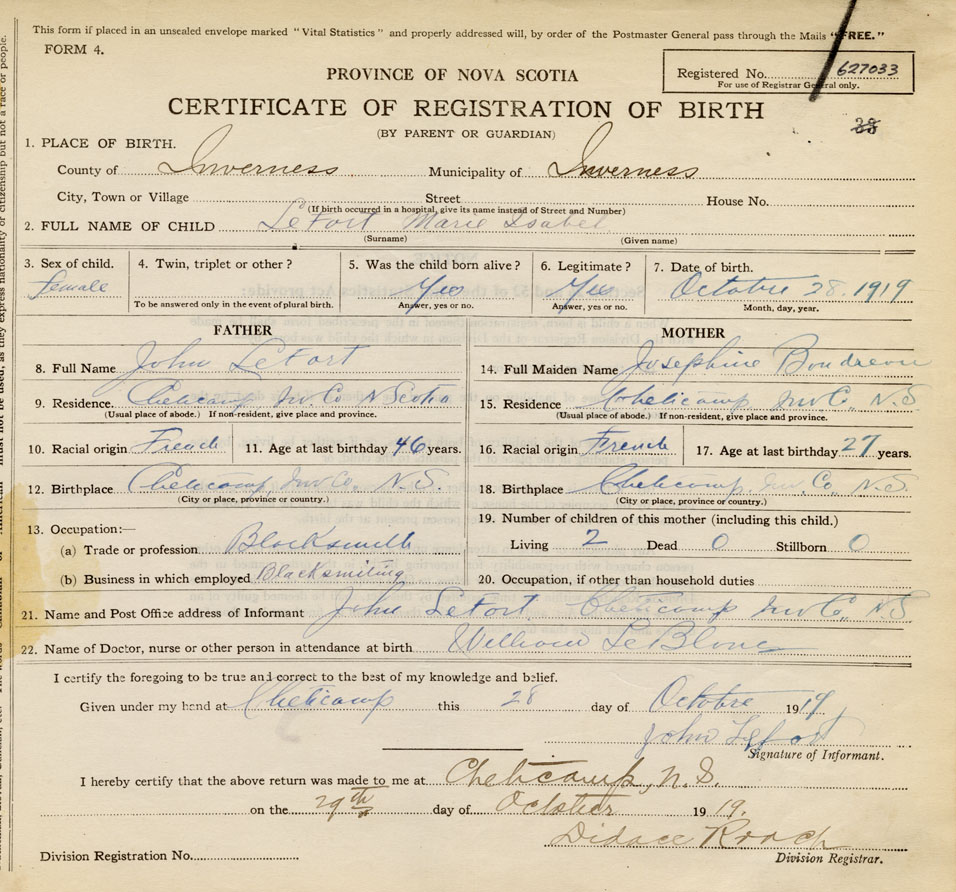 This form if placed in an unsealed envelope marked "Vital Statistics" and properly addressed will, by order of the Postmaster General pass through the Mails "FREE."
FORM 4.
Registered No. 627033
For use of Registrar General only.
PROVINCE OF NOVA SCOTIA
CERTIFICATE OF REGISTRATION OF BIRTH
(BY PARENT OR GUARDIAN)
38
1. PLACE OF BIRTH.
County of Inverness Municipality of Inverness
City, Town or Village Street House No.
(If birth occurred in a hospital, give its name instead of Street and Number)
2. FULL NAME OF CHILD LeFort Marie Isabel
(Surname) (Given name)
3. Sex of child. 4. Twin, triplet or other? 5. Was the child born alive? 6. Legitimate? 7. Date of birth.
female Yes Yes Octobre 28 1919
To be answered only in the event of plural birth. Answer, yes or no. Answer, yes or no. Month, day, year.
FATHER MOTHER
8. Full Name John LeFort 14. Full Maiden Name Josephine Boudreau
9. Residence. Cheticamp Inv Co N Scotia 15. Residence Cheticamp Inv Co, N.S
(Usual place of abode.) If non-resident, give place and province. (Usual place of abode.) If non-resident, give place and province.
10. Racial origin French 11. Age at last birthday 46 years. 16. Racial origin French 17. Age at last birthday 27 years.
12. Birthplace Cheticamp, Inv Co, N.S. 18. Birthplace Cheticamp, Inv. Co, N.S.
(City or place, province or country.) (City or place, province or country.)
13. Occupation:— 19. Number of children of this mother (including this child.)
(a) Trade or profession Blacksmith Living 2 Dead 0 Stillborn 0
(b) Business in which employed Blacksmiting 20. Occupation, if other than household duties
21. Name and Post Office address of Informant John LeFort, Cheticamp Inv Co, N.S
22. Name of Doctor, nurse or other person in attendance at birth William LeBlanc
I certify the foregoing to be true and correct to the best of my knowledge and belief.
Given under my hand at Cheticamp this 28 day of Octobre 1919
John LeFort
Signature of Informant.
I hereby certify that the above return was made to me at Cheticamp, N.S.
on the 29th day of October 1919.
Didace Roach
Division Registrar.
Division Registration No.